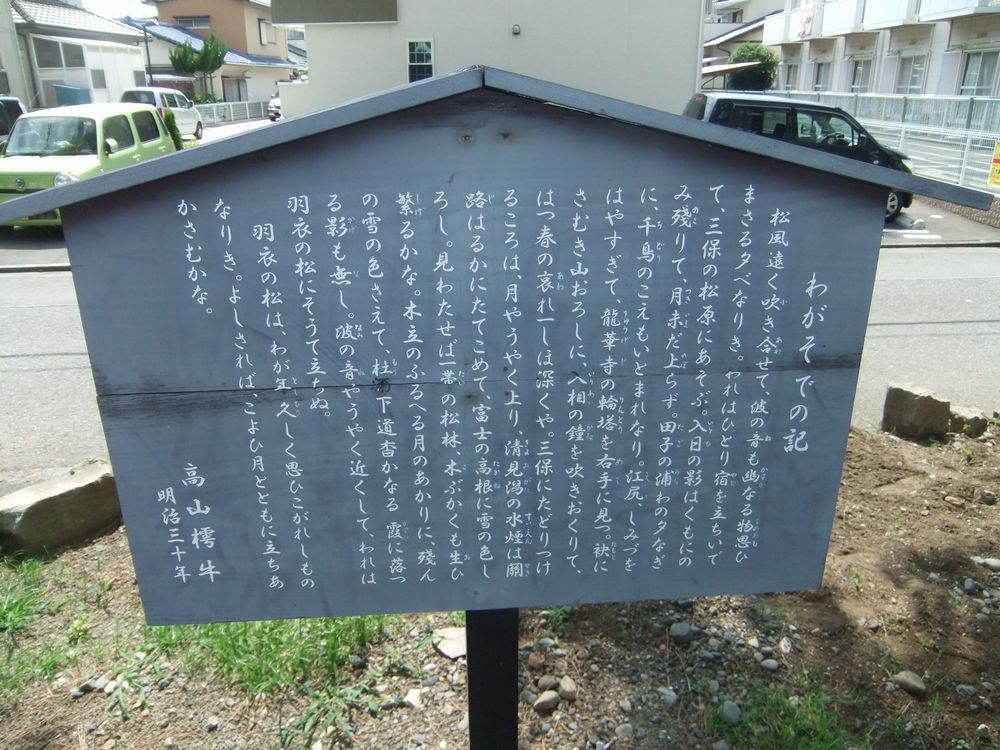 わがそでの記
松風遠く吹き合せて、波の音も幽なる物思ひ
まさる夕べなりき。われはひとり宿を立ちいで
て、三保の松原にあそぶ。入日の影はくもにの
み残りて、月未だ上らず。田子の浦わの夕なぎ
に、千鳥のこえもいとまれなり。江尻、しみづを
はやすぎて、龍華寺の輪塔を右手に見つ。袂に
さむき山おろしに、入相の鐘を吹きおくりて、
はつ春の哀れ一しほ深くや。三保にたどりつけ
るころは、月やうやく上り、清見潟の水煙は關
路はるかにたてこめて、富士の高根に雪の色し
ろし。見わたせば一帯の松林、木ぶかくも生ひ
繁るかな。木立のふるへる月のあかりに、残ん
の雪の色さえて、杜の下道杳かなる霞に落つ
る影も無し。波の音やうやく近くして、われは
羽衣の松にそうて立ちぬ。
羽衣の松は、わが年久しく思ひこがれしもの
なりき。よしされば、こよひ月とともに立ちあ
かさむかな。
高山樗牛
明治三十年